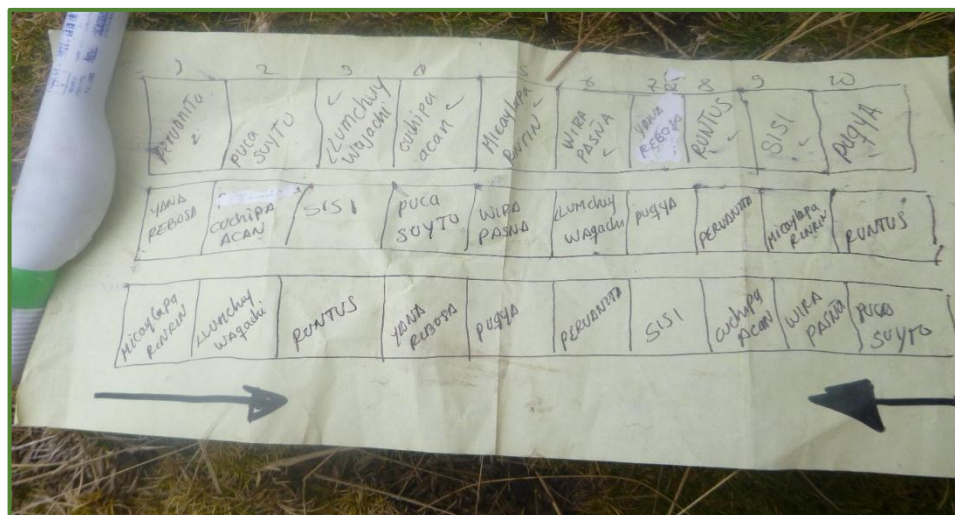 1 2 3 4 5 6 7 8 9 10
PERUANITO
PUCA SUYTO
LLUMCHUY WAQACHI
CUCHIPA ACAN
MICAYLAPA RINRIN
WIRA PASÑA
YANA REBOSA
RUNTUS
SISI
PUQYA
YANA REBOSA
CUCHIPA ACAN
SISI
PUCA SUYTO
WIRA PASÑA
LLUMCHUY WAQACHI
PUQYA
PERUANITA
MICAYLAPA RINRIN
RUNTUS
MICAYLAPA RINRIN
LLUMCHUY WAQACHI
RUNTUS
YANA REBOSA
PUQYA
PERUANITA
SISI
CUCHIPA ACAN
WIRA PASÑA
PUCA SUYTO